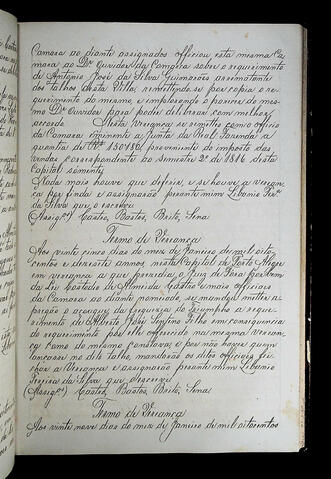 Camara ao diante assignados officiou esta mesma Ca-
mara ao Dr. Ouvidor da Comarca sobre o requerimento
de Antonio José da Silva Guimarães arrematante
dos talhos desta Villa, remettendo se por copia o re-
querimento do mesmo, e implorando o parecer do mes-
mo Dr. Ouvidor para poder deliberar com melhor
accordo. Nesta vereança se remetteo como officio
da Camara a Junta da Real Fazenda a
quantia de proveniente do imposto das
vendas correspondente ao semestre 2º de 1816 desta
Capital somente.
Nada mais houve que deferir, e se houve a verean-
ça por finda e assignarão presente mim Libanio Per.ª
da Silva que o escrevi
(Assig.os) Castro, Bastos, Brito, Sena
Termo de Vereança
Aos vinte cinco dias do mez de Janeiro de mil oito
centos e dezesete annos, nesta Capital de Porto Alegre
em vereança a que presedio o Juiz de Fora por bem
da Lei Custodio de Almeida Castro e mais officiaes
da Camara ao diante nomeiado, se mandou metter a
pregão o açougue da freguezia do Triumpho a reque-
rimento de Alberto José Centino Filho em consequencia
do requerimento por elle offerecido na mesma verean-
ça como do mesmo constava; e por não haver quem
lancasse no dito talho, mandarão os ditos officiaes fe-
char a Vereança e assignarão presente mim Libanio
Pereira da Silva que escrevi
(Assig.os) Castro, Bastos, Brito, Sena
Termo de Vereança
Aos vinte nove dias do mez de Janeiro de mil oitocentos